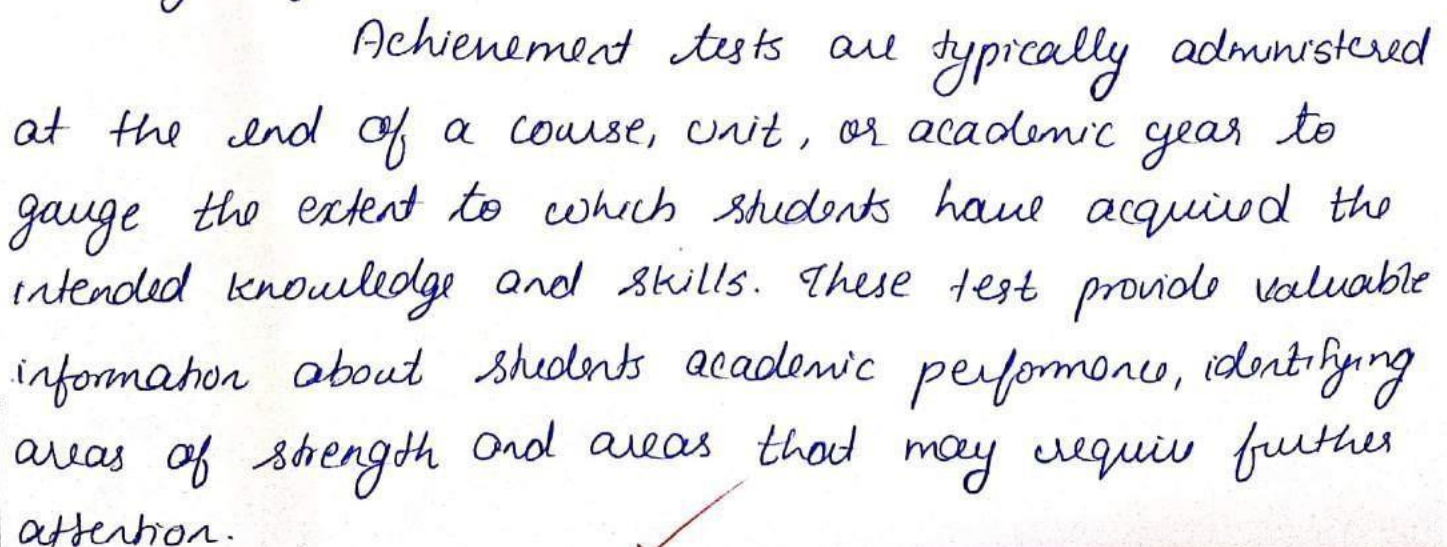 Achievement tests are typically administered
at the end of a course, unit, or academic year to
gauge the extent to which students have acquired the
intended knowledge and skills. These test provide valuable
information about students academic performance, identifying
areas of strength and areas that may require further
attention.